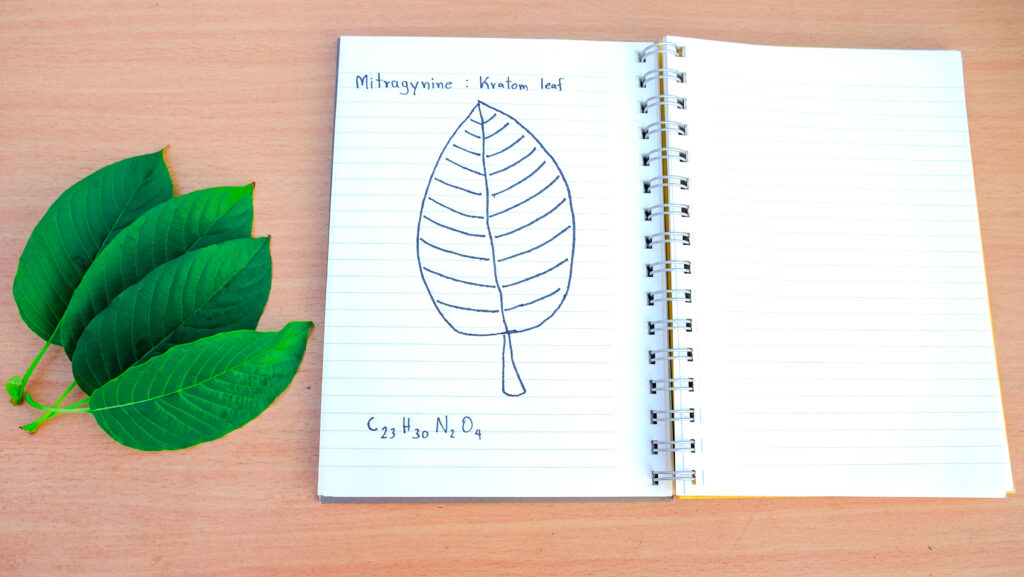 Mitragynine : Kratom leaf
C23 H30 N2 O4